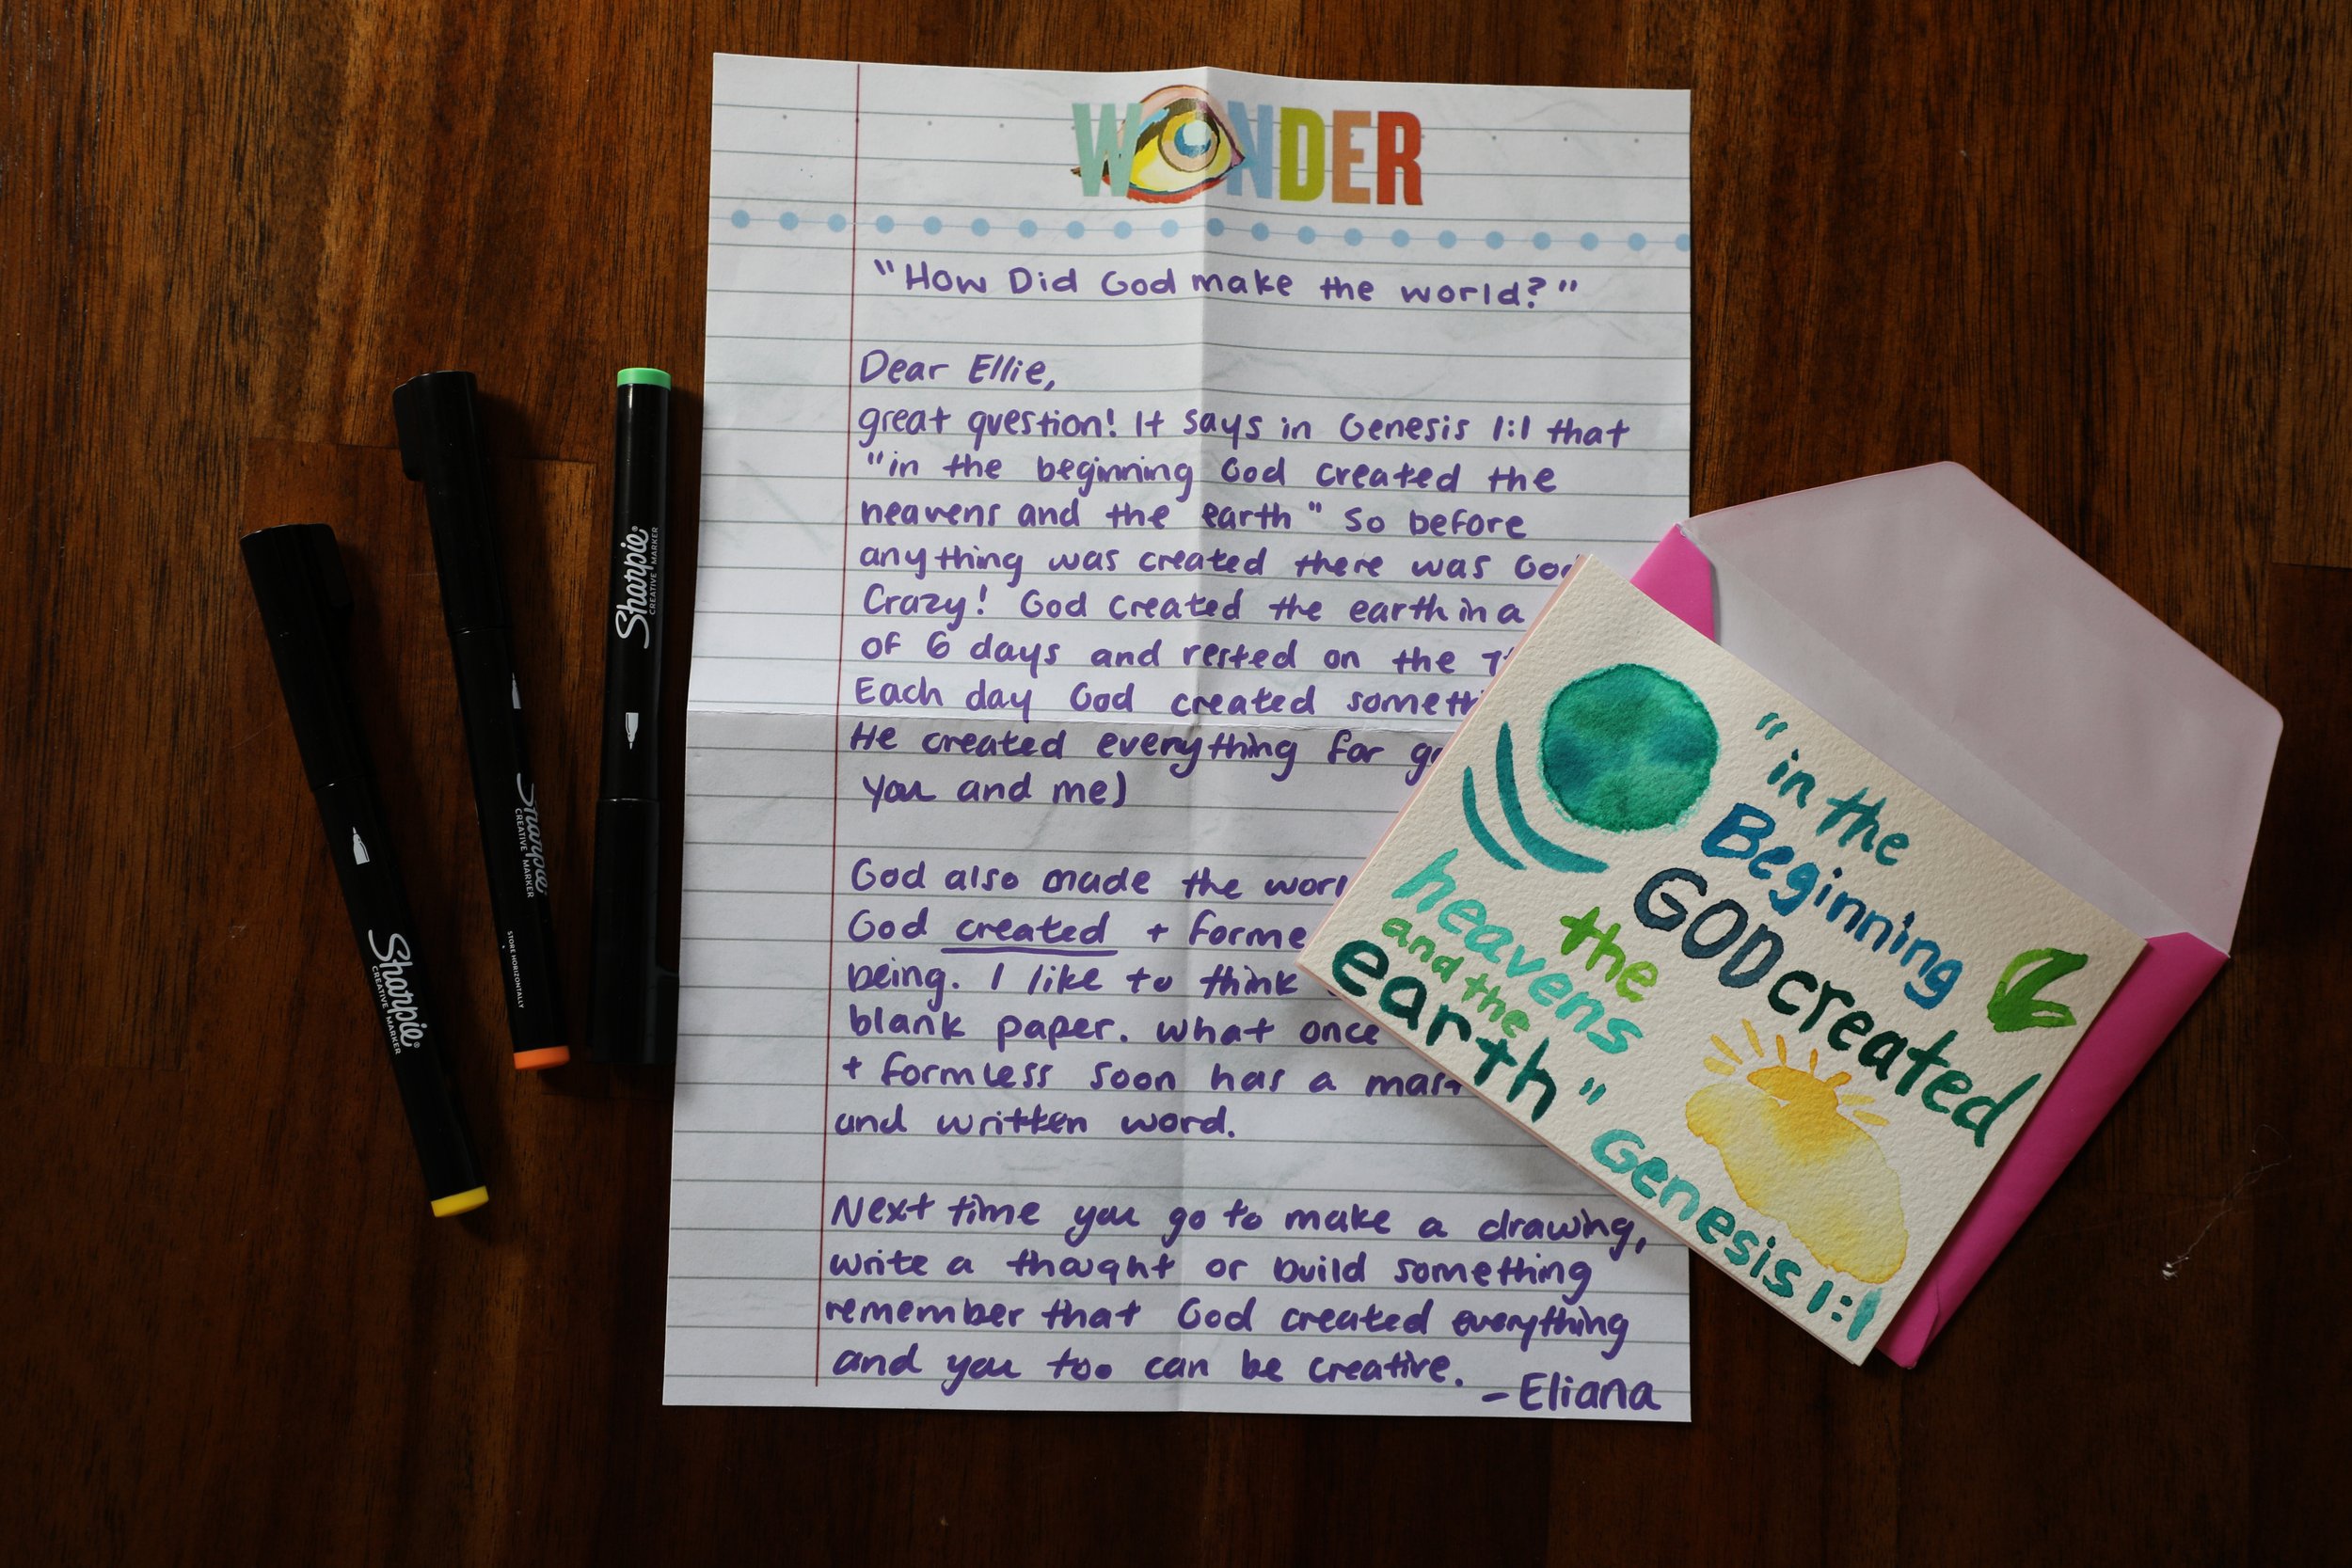 WONDER
"How Did God make the world?"
Dear Ellie,
great question! It says in Genesis 1:1 that
"in the beginning God created the
heavens and the earth" So before
anything was created there was God
Crazy! God created the earth in a
of 6 days and rested on the
Each day God created
He created everything for
you and me)
God also made the
God created +
being. I like to think
blank paper. What once
+ formless soon has a
and written word.
Next time you go to make a drawing,
write a thought or build something
remember that God created everything
and you too can be creative.
- Eliana
"in the
Beginning
GOD created
the
heavens
and the
earth"
Genesis 1:1
Sharpie®
CREATIVE MARKER
Sharpie
CREATIVE MARKER
STORE HORIZONTALLY
Sharpie®
CREATIVE MARKER